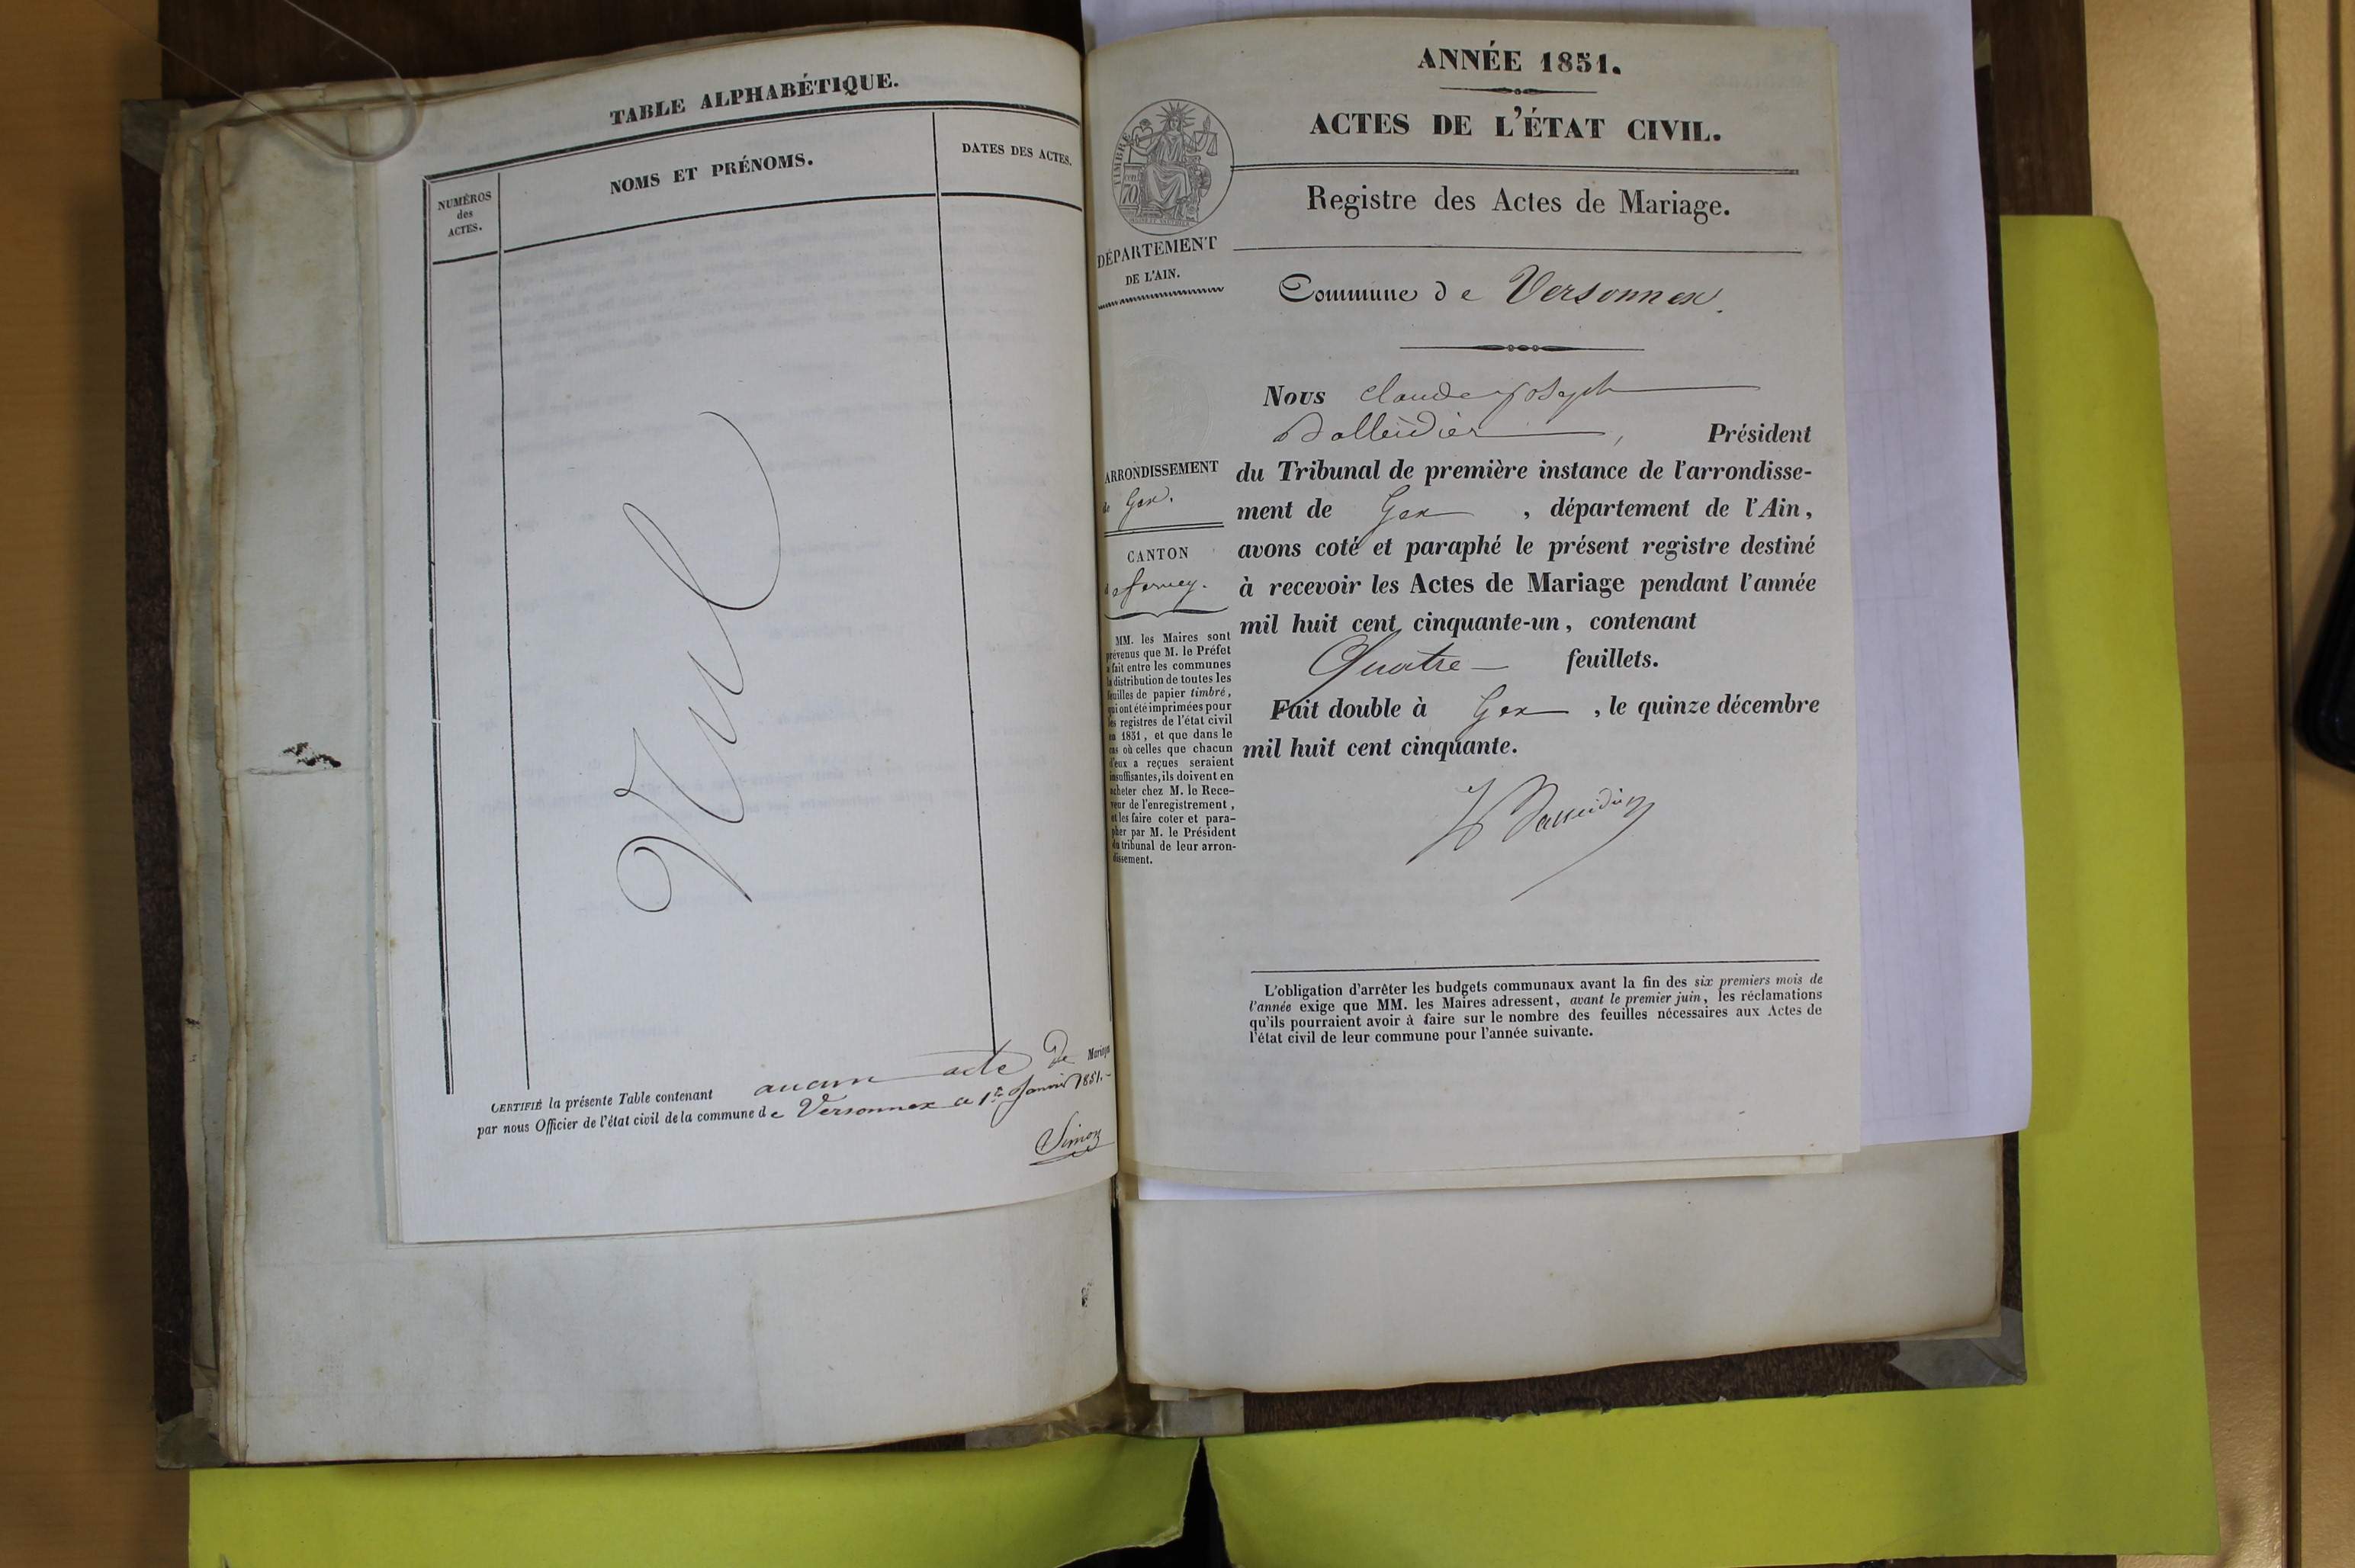 TABLE ALPHABÉTIQUE.
NUMÉROS
des
ACTES.
NOMS ET PRÉNOMS.
DATES DES ACTES.
Nul
CERTIFIÉ la présente Table contenant aucun acte de Mariage
par nous Officier de l'état civil de la commune de Versonnex ce 1er Janvier 1851.
Simon
ANNÉE 1851.
ACTES DE L'ÉTAT CIVIL.
Registre des Actes de Mariage.
TIMBRE
70
DÉPARTEMENT
DE L'AIN.
Commune de Versonnex.
ARRONDISSEMENT
de Gex.
CANTON
de ferney.
MM. les Maires sont
prévenus que M. le Préfet
a fait entre les communes
la distribution de toutes les
feuilles de papier timbré,
qui ont été imprimées pour
les registres de l'état civil
en 1851, et que dans le
cas où celles que chacun
d'eux a reçues seraient
insuffisantes, ils doivent en
acheter chez M. le Rece-
veur de l'enregistrement,
et les faire coter et para-
pher par M. le Président
du tribunal de leur arron-
dissement.
Nous Claude joseph
, Président
du Tribunal de première instance de l'arrondisse-
ment de Gex , département de l'Ain,
avons coté et paraphé le présent registre destiné
à recevoir les Actes de Mariage pendant l'année
mil huit cent cinquante-un, contenant
Quatre feuillets.
Fait double à Gex , le quinze décembre
mil huit cent cinquante.
L'obligation d'arrêter les budgets communaux avant la fin des six premiers mois de
l'année exige que MM. les Maires adressent, avant le premier juin, les réclamations
qu'ils pourraient avoir à faire sur le nombre des feuilles nécessaires aux Actes de
l'état civil de leur commune pour l'année suivante.